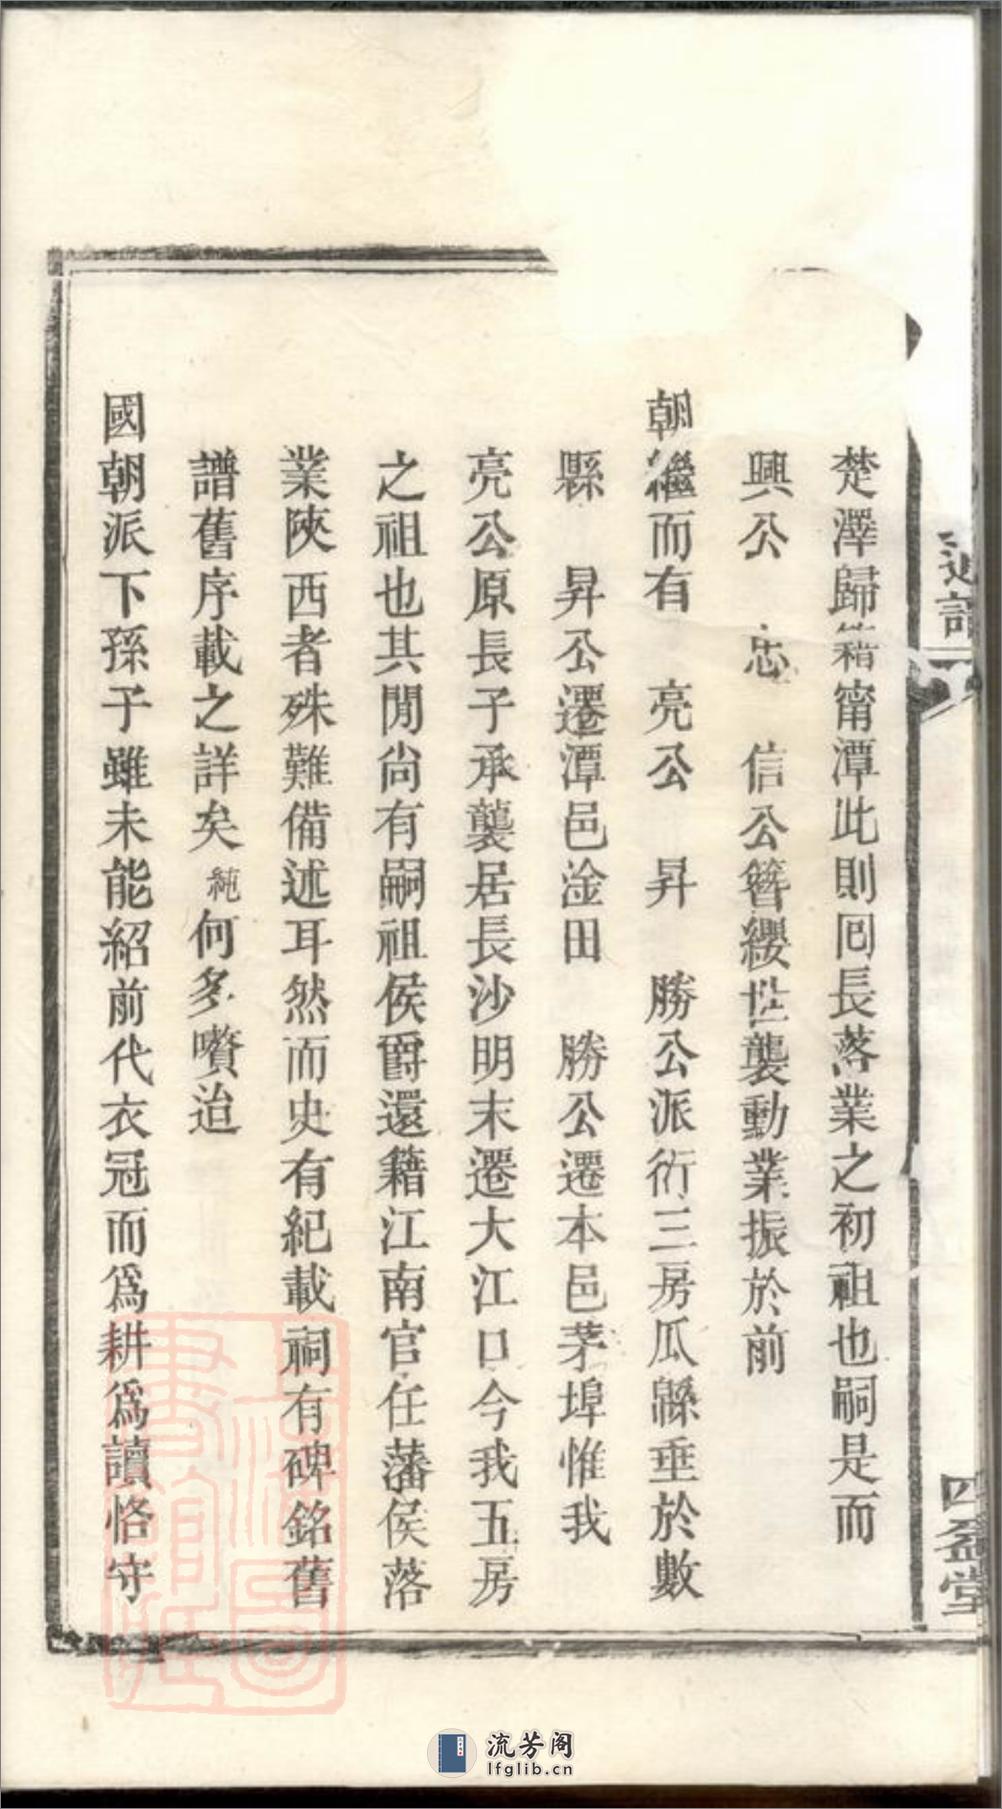 楚澤歸籍甯潭此則回長落業之初祖也嗣是而
興公　忠　信公簪纓世襲動業振於前
朝繼而有　亮公　昇　勝公派衍三房瓜緜垂於數
縣　昇公遷潭邑淦田　勝公遷本邑茅埠惟我
亮公原長子承襲居長沙明末遷大江口今我五房
之祖也其閒尚有嗣祖侯爵還籍江南官任藩侯落
業陝西者殊難備述耳然而史有紀載祠有碑銘舊
譜舊序載之詳矣純何多嚽迨
國朝派下孫子雖未能紹前代衣冠而爲耕爲讀恪守
四益堂
上海圖書館藏
流芳阁
lfglib.cn